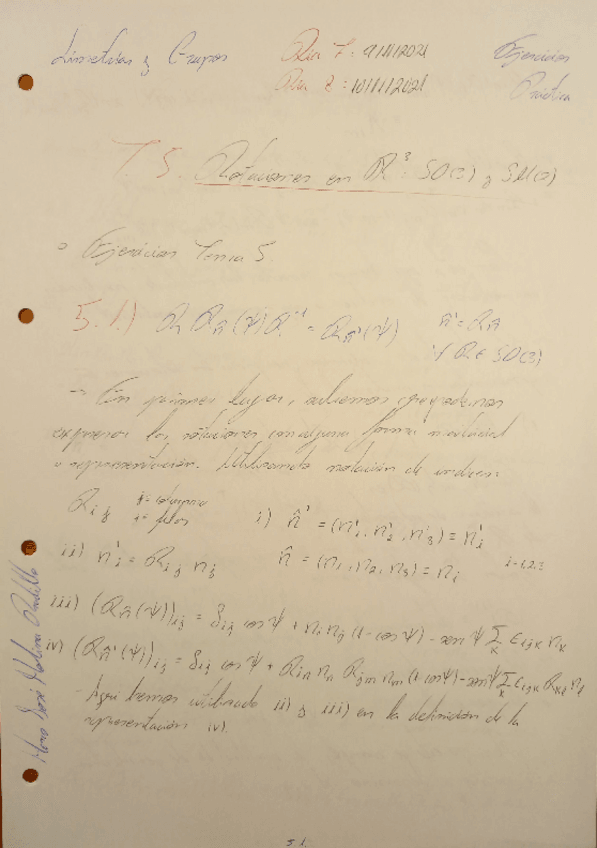 Simetrías y Grupos
Día 7: 9/11/2021
Día 8: 10/11/2021
Ejercicios
Práctica
T.5. Rotaciones en R³: SO(3) y SU(2)
Ejercicios Tema 5.
5.1.) R R_n̂(ψ) R⁻¹ = R_n̂'(ψ) n̂' = R n̂
∀ R ∈ SO(3)
→ En primer lugar, sabemos que podemos
expresar las rotaciones con alguna forma matricial
o representación. Utilizando notación de índices:
R_ij j = columna
i = filas
i) n̂' = (n'₁, n'₂, n'₃) = n'_i
ii) n'_i = R_ij n_j n̂ = (n₁, n₂, n₃) = n_i i=1,2,3
iii) (R_n̂(ψ))_ij = δ_ij cos ψ + n_i n_j (1 - cos ψ) - sen ψ Σ_k ε_ijk n_k
iv) (R_n̂'(ψ))_ij = δ_ij cos ψ + R_in n_n R_jm n_m (1 - cos ψ) - sen ψ Σ_k ε_ijk R_kl n_l
Aquí hemos utilizado ii) y iii) en la definición de la
representación iv).
5.1.